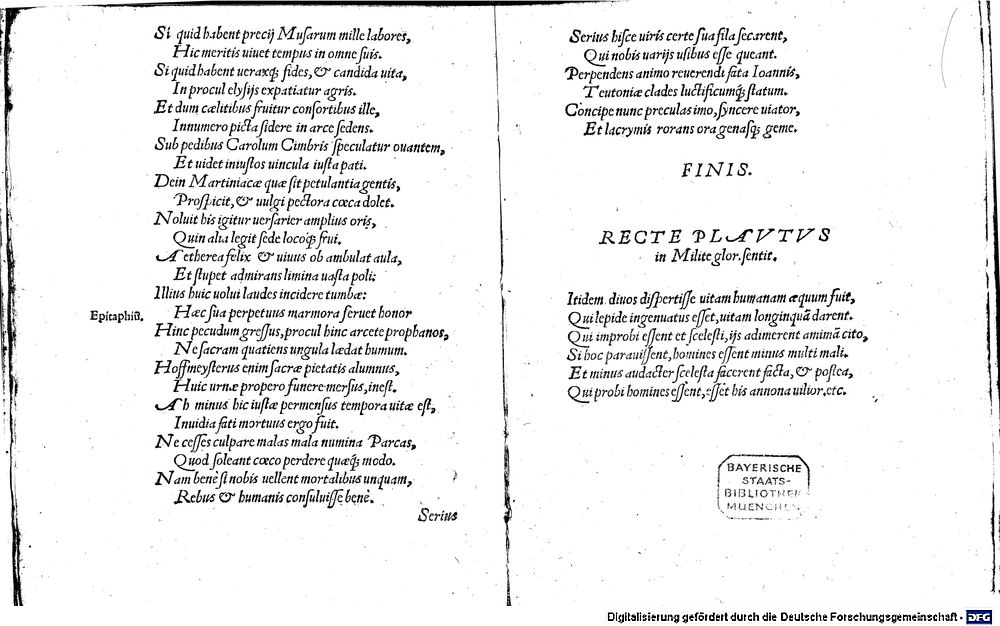 Si quid habent precij Musarum mille labores,
Hic meritis uiuet tempus in omne suis.
Si quid habent ueraxq́; fides, & candida uita,
In procul elysijs expatiatur agris.
Et dum cælitibus fruitur consortibus ille,
Innumero picta sidere in arce sedens.
Sub pedibus Carolum Cimbris speculatur ouantem,
Et uidet iniustos uincula iusta pati.
Dein Martiniacæ quæ sit petulantia gentis,
Prospicit, & uulgi pectora cœca dolet.
Noluit his igitur uersarier amplius oris,
Quin alia legit sede locoq́; frui.
Aetherea felix & uiuus ob ambulat aula,
Et stupet admirans limina uasta poli:
Illius huic uolui laudes incidere tumbæ:
Epitaphiū.
Hæc sua perpetuus marmora seruet honor
Hinc pecudum gressus, procul hinc arcete prophanos,
Ne sacram quatiens ungula lædat humum.
Hoffmeysterus enim sacræ pietatis alumnus,
Huic urnæ propero funere mersus, inest.
Ah minus hic iustæ permensus tempora uitæ est,
Inuidia fati mortuus ergo fuit.
Ne cesses culpare malas mala numina Parcas,
Quod soleant cœco perdere quæq́; modo.
Nam benè si nobis uellent mortalibus unquam,
Rebus & humanis consuluisse benè.
Serius
Serius hisce uiris certe sua fila secarent,
Qui nobis uarijs usibus esse queant.
Perpendens animo reuerendi fata Ioannis,
Teutoniæ clades luctificumq́; statum.
Concipe nunc preculas imo, syncere uiator,
Et lacrymis rorans ora genasq́; geme.
FINIS.
RECTE PLAVTVS
in Milite glor. sentit.
Itidem diuos dispertisse uitam humanam æquum fuit,
Qui lepide ingenuatus esset, uitam longinquā darent.
Qui improbi essent et scelesti, ijs adimerent animā cito,
Si hoc parauissent, homines essent minus multi mali.
Et minus audacter scelesta facerent facta, & postea,
Qui probi homines essent, esset his annona uilior. etc.
BAYERISCHE
STAATS-
BIBLIOTHEK
MUENCHEN
Digitalisierung gefördert durch die Deutsche Forschungsgemeinschaft - DFG